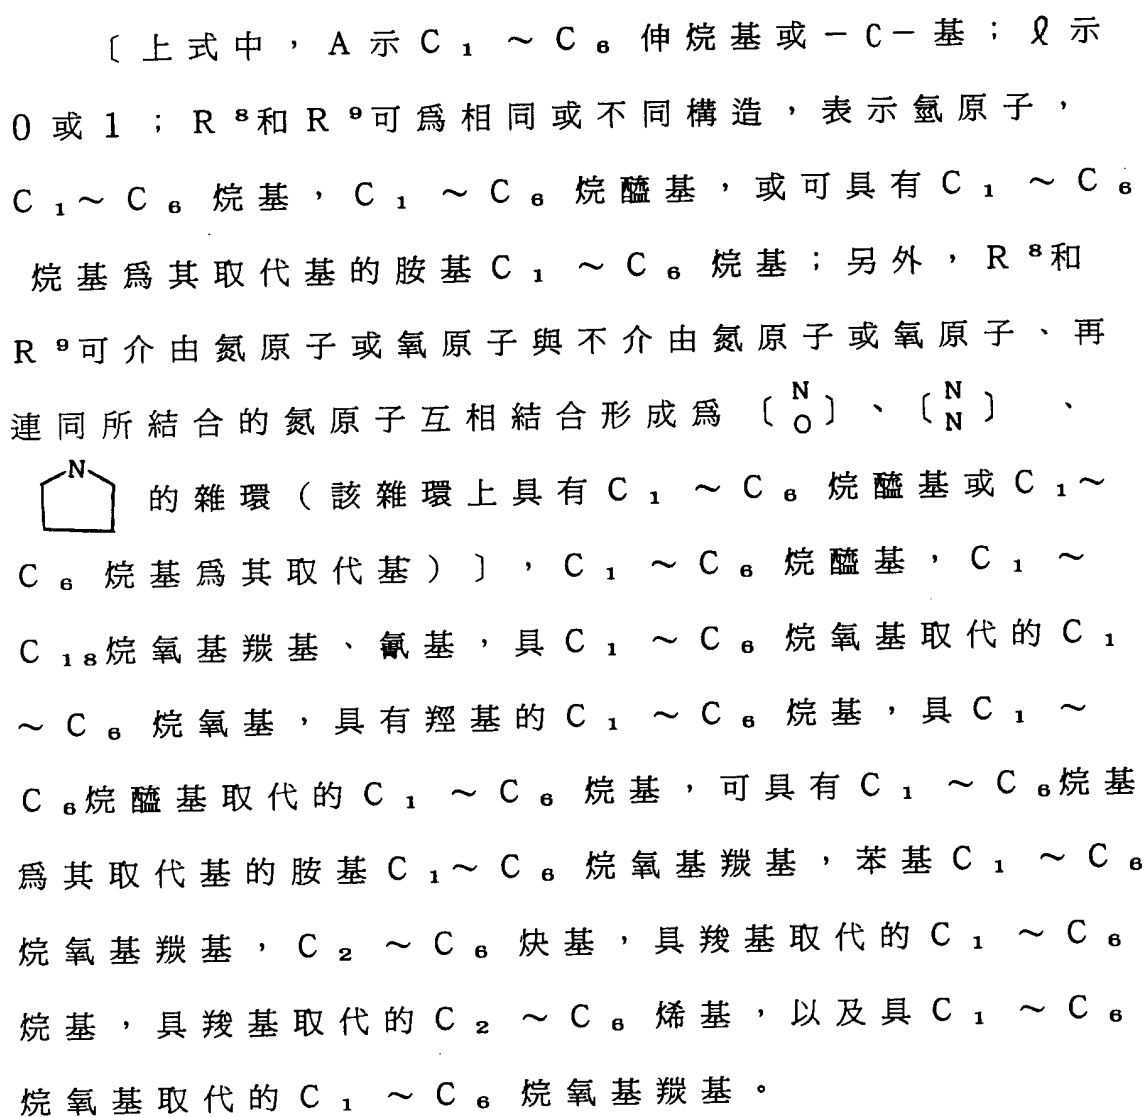 〔上式中，A示C₁～C₆伸烷基或－C－基；ℓ示
0或1；R⁸和R⁹可爲相同或不同構造，表示氫原子，
C₁～C₆烷基，C₁～C₆烷醯基，或可具有C₁～C₆
烷基爲其取代基的胺基C₁～C₆烷基；另外，R⁸和
R⁹可介由氮原子或氧原子與不介由氮原子或氧原子、再
連同所結合的氮原子互相結合形成爲〔N O〕、〔N N〕、
N的雜環（該雜環上具有C₁～C₆烷醯基或C₁～
C₆烷基爲其取代基）〕，C₁～C₆烷醯基，C₁～
C₁₈烷氧基羰基、氰基，具C₁～C₆烷氧基取代的C₁
～C₆烷氧基，具有羥基的C₁～C₆烷基，具C₁～
C₆烷醯基取代的C₁～C₆烷基，可具有C₁～C₆烷基
爲其取代基的胺基C₁～C₆烷氧基羰基，苯基C₁～C₆
烷氧基羰基，C₂～C₆炔基，具羧基取代的C₁～C₆
烷基，具羧基取代的C₂～C₆烯基，以及具C₁～C₆
烷氧基取代的C₁～C₆烷氧基羰基。